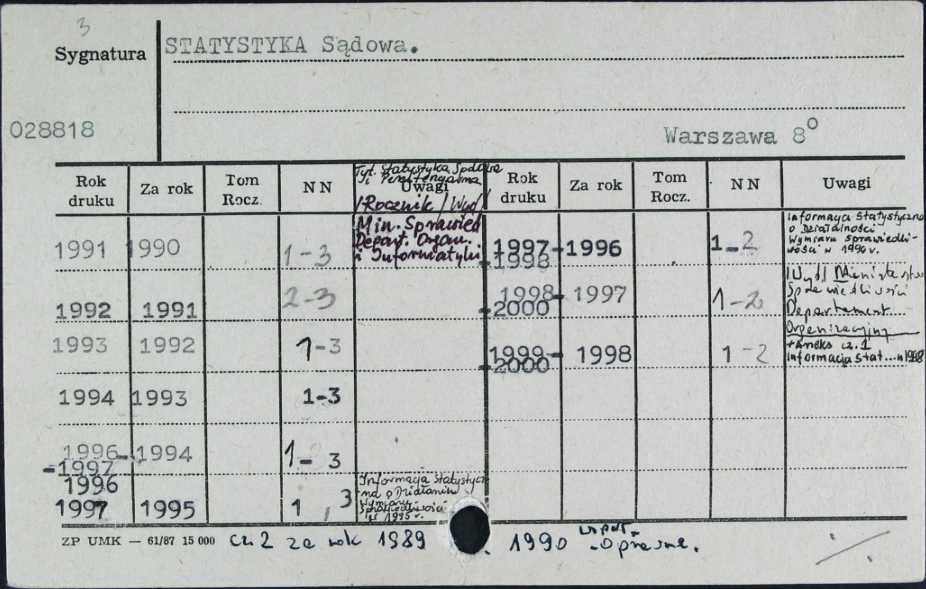 3
Sygnatura
STATYSTYKA Sądowa.
028818
Warszawa 8º
Rok druku Za rok Tom Rocz. NN Uwagi Rok druku Za rok Tom Rocz. NN Uwagi
Tyt. Statystyka Sądowa
i Penitencjarna
/Rocznik/ Wyd/
Min. Sprawied
Depart. Organ.
i Informatyki
1991 1990 1-3
1992 1991 2-3
1993 1992 1-3
1994 1993 1-3
1996-
-1997 1994 1-3
1996
1997 1995 1, 3
Informacja statystycz
na o Działaniu
Wymiaru
Sprawiedliwości
w 1995 r.
1997-
-1998 1996 1-2
Informacja Statystyczna
o Działalności
Wymiaru sprawiedli-
wości w 1996 r.
1998-
-2000 1997 1-2
/Wyd/ Ministerstwo
Sprawiedliwości
Departament
Organizacyjny
1999-
-2000 1998 1-2
+Aneks cz. 1
Informacja stat... w 1998
ZP UMK — 61/87 15 000
cz. 2 za rok 1989
. 1990 współ-
-oprawne.